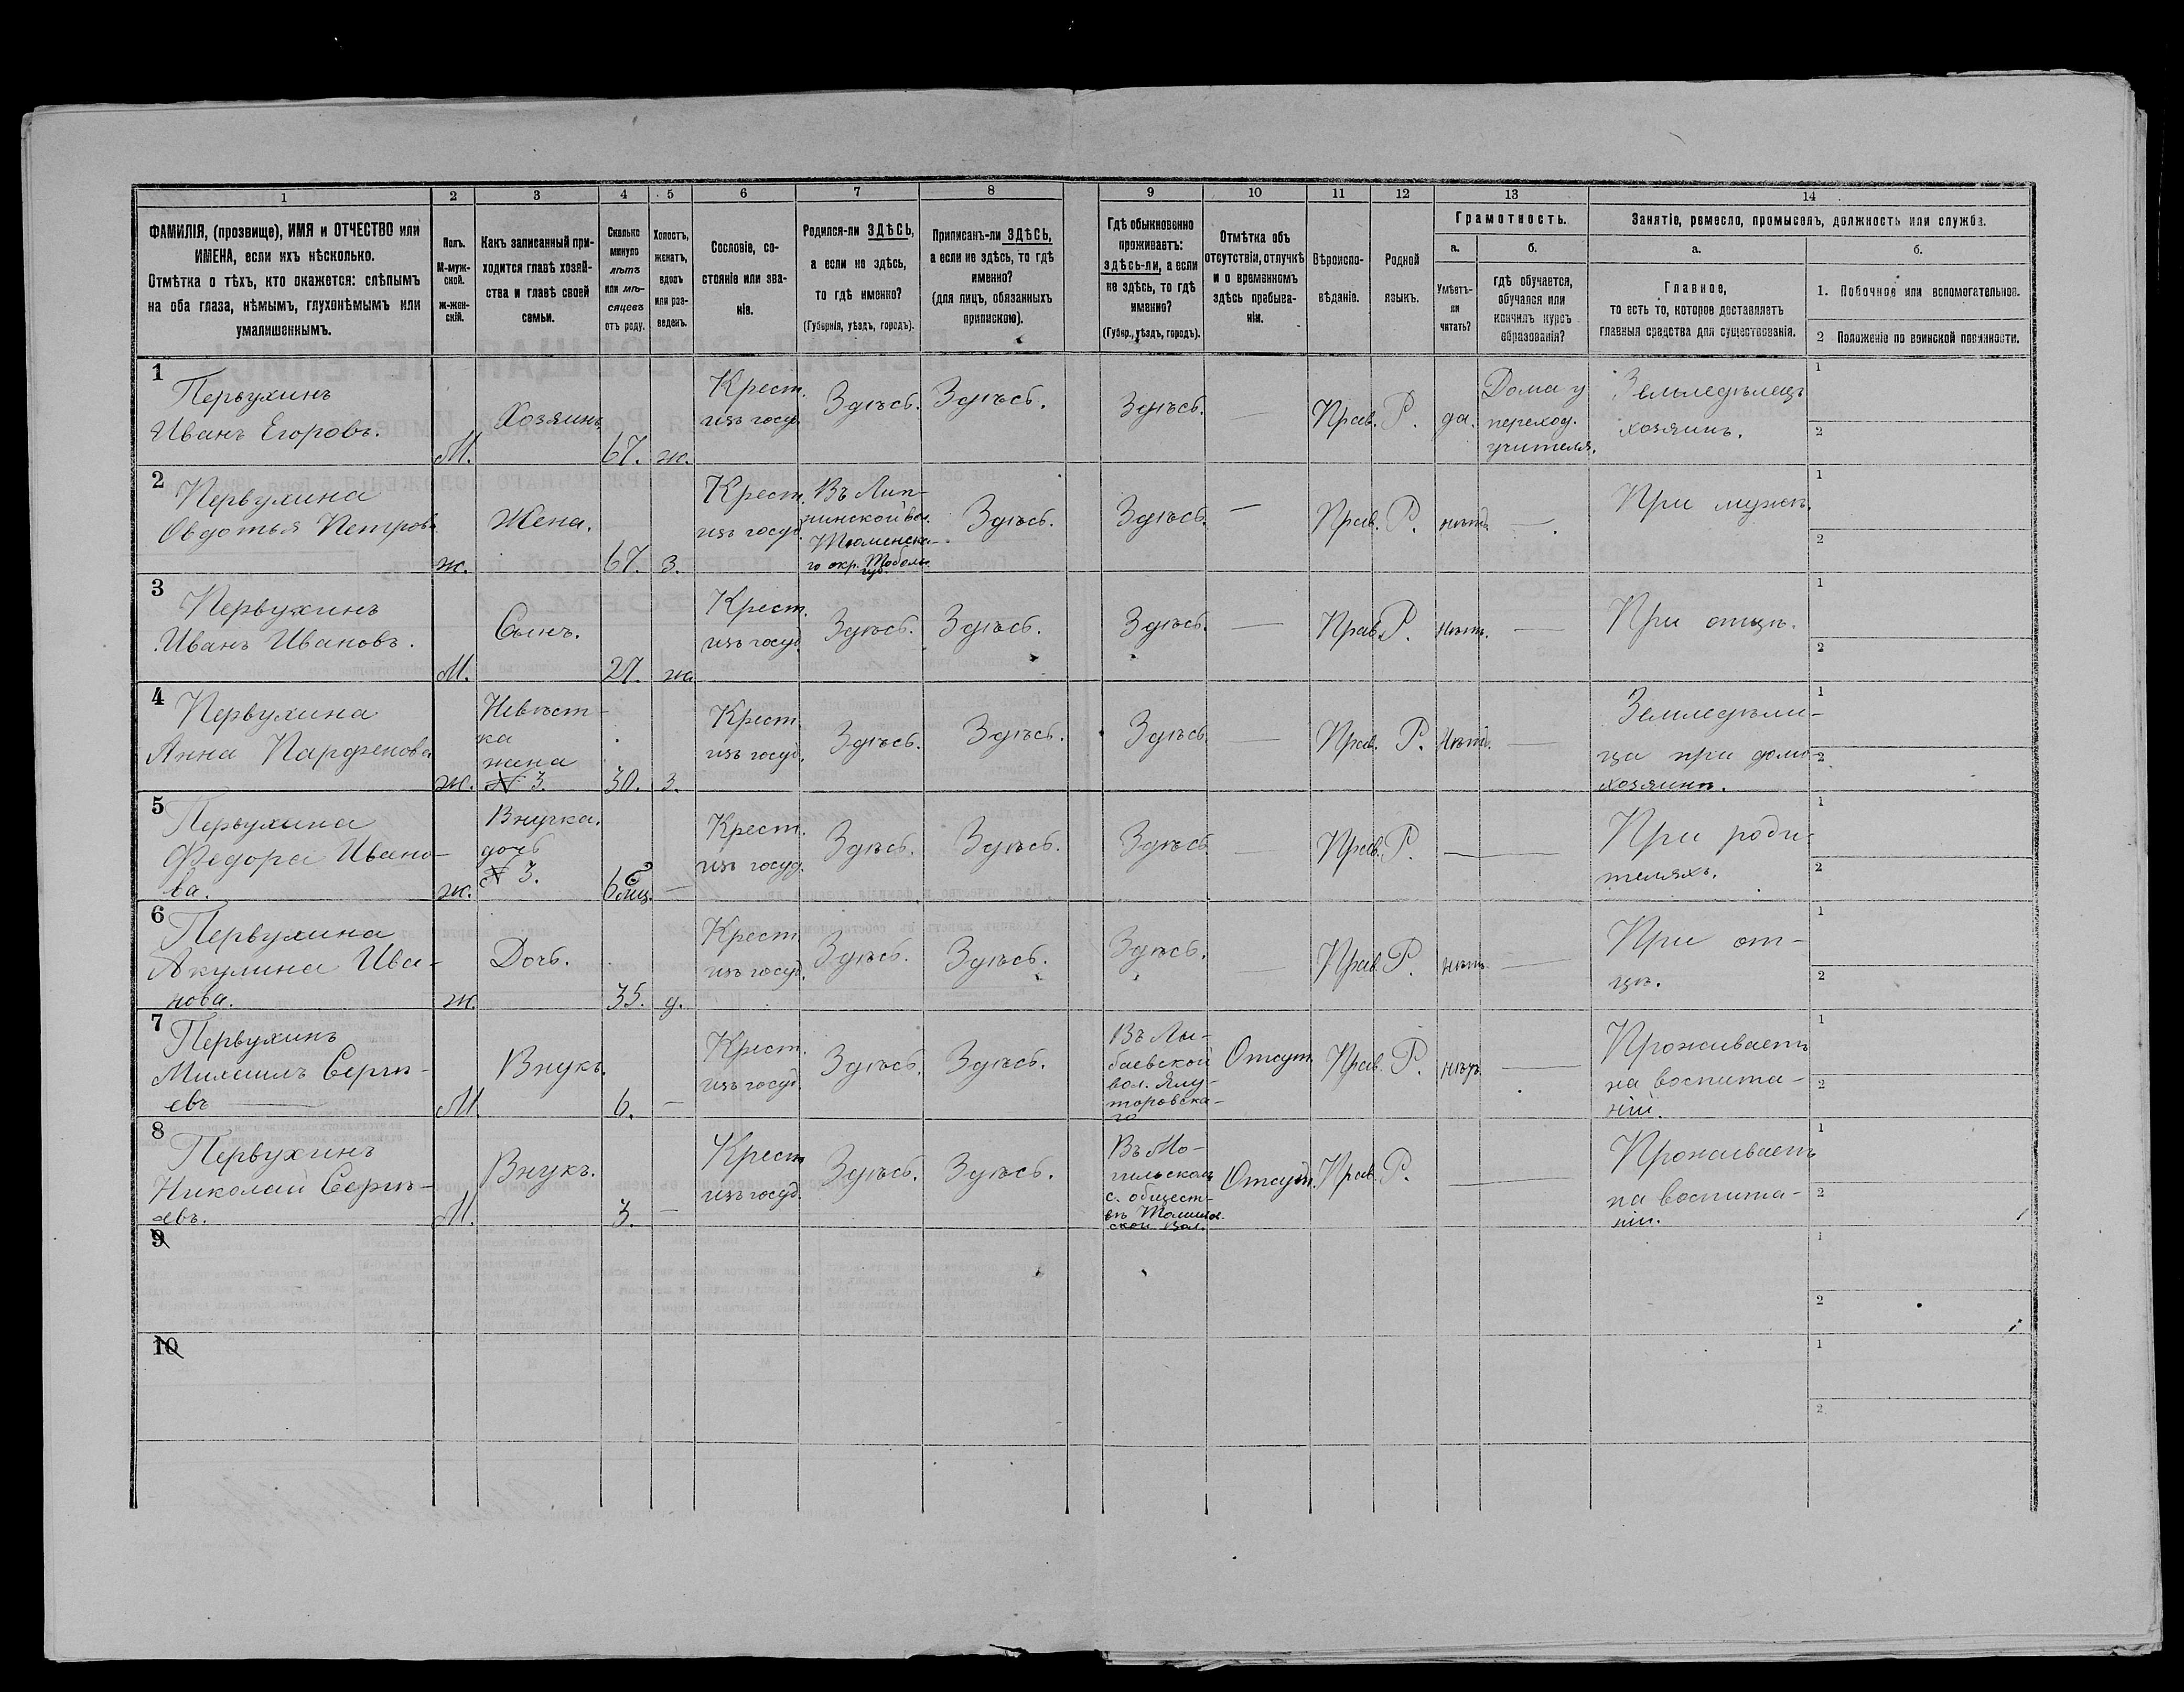 1 2 3 4 5 6 7 8 9 10 11 12 13 14
ФАМИЛІЯ, (прозвище), ИМЯ и ОТЧЕСТВО или
ИМЕНА, если ихъ нѣсколько.
Отмѣтка о тѣхъ, кто окажется: слѣпымъ
на оба глаза, нѣмымъ, глухонѣмымъ или
умалишеннымъ.
Полъ.
М-муж-
ской.
ж-жен-
скій.
Какъ записанный при-
ходится главѣ хозяй-
ства и главѣ своей
семьи.
Сколько
минуло
лѣтъ
или мѣ-
сяцевъ
отъ роду.
Холостъ,
женатъ,
вдовъ
или раз-
веденъ.
Сословіе, со-
стояніе или зва-
ніе.
Родился-ли ЗДѢСЬ,
а если не здѣсь,
то гдѣ именно?
(Губернія, уѣздъ, городъ).
Приписанъ-ли ЗДѢСЬ,
а если не здѣсь, то гдѣ
именно?
(для лицъ, обязанныхъ
припискою).
Гдѣ обыкновенно
проживаетъ:
здѣсь-ли, а если
не здѣсь, то гдѣ
именно?
(Губер., уѣздъ, городъ).
Отмѣтка объ
отсутствіи, отлучкѣ
и о временномъ
здѣсь пребыва-
ніи.
Вѣроиспо-
вѣданіе.
Родной
языкъ.
Грамотность.
а.
Умѣетъ-
ли
читать?
б.
гдѣ обучается,
обучался или
кончилъ курсъ
образованія?
Занятіе, ремесло, промыселъ, должность или служба.
а.
Главное,
то есть то, которое доставляетъ
главныя средства для существованія.
б.
1. Побочное или вспомогательное.
2 Положеніе по воинской повинности.
1
Первухинъ
Иванъ Егоровъ.
М.
Хозяинъ
67.
ж.
Крест.
изъ госуд.
Здѣсь.
Здѣсь.
Здѣсь.
—
Прав.
Р.
да.
Дома у
переход.
учителя.
Земледѣлецъ
хозяинъ.
1
2
2
Первухина
Овдотья Петрова
ж.
Жена.
67.
з.
Крест.
изъ госуд.
Въ Лип-
чинской вол.
Тюменска-
го окр. Тобольс.
губ.
Здѣсь.
Здѣсь.
—
Прав.
Р.
нѣтъ.
—
При мужѣ.
1
2
3
Первухинъ
Иванъ Ивановъ.
М.
Сынъ.
27.
ж.
Крест.
изъ госуд.
Здѣсь.
Здѣсь.
Здѣсь.
—
Прав.
Р.
нѣтъ.
—
При отцѣ.
1
2
4
Первухина
Анна Парфенова
ж.
Невѣст-
ка
жена
№ 3.
30.
з.
Крест.
изъ госуд.
Здѣсь.
Здѣсь.
Здѣсь.
—
Прав.
Р.
Нѣтъ.
—
Земледѣли-
ца при домо-
хозяинѣ.
1
2
5
Первухина
Федора Ивано-
ва.
ж.
Внучка.
дочь
№ 3.
6 мц.
—
Крест.
изъ госуд.
Здѣсь.
Здѣсь.
Здѣсь.
—
Прав.
Р.
—
При роди-
теляхъ.
1
2
6
Первухина
Акулина Ива-
нова.
ж.
Дочь.
35.
д.
Крест.
изъ госуд.
Здѣсь.
Здѣсь.
Здѣсь.
—
Прав.
Р.
нѣтъ.
—
При от-
цѣ.
1
2
7
Первухинъ
Михаилъ Сергѣ-
евъ
М.
Внукъ.
6.
—
Крест.
изъ госуд.
Здѣсь.
Здѣсь.
Въ Лы-
баевской
вол. Ялу-
торовска-
го
Отсут.
Прав.
Р.
нѣтъ.
—
Проживаетъ
на воспита-
ніи.
1
2
8
Первухинъ
Николай Сергѣ-
евъ.
М.
Внукъ.
3.
—
Крест.
изъ госуд.
Здѣсь.
Здѣсь.
с. общест-
вѣ
ской вол.
Отсут.
Прав.
Р.
—
Проживаетъ
на воспита-
ніи.
1
2
9
1
2
10
1
2